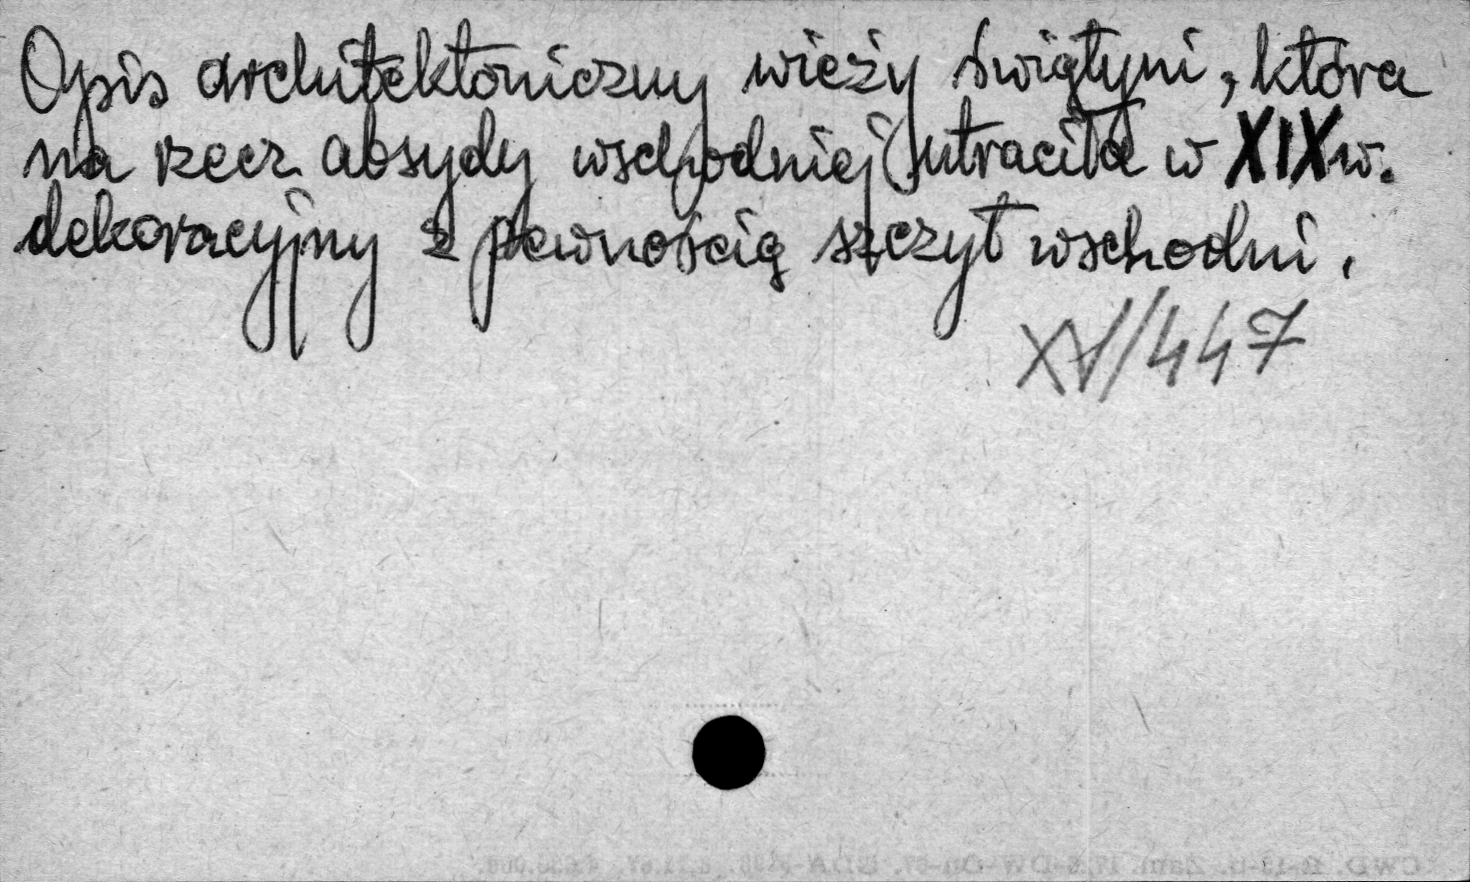 Opis architektoniczny wieży świątyni, która
na rzecz absydy wschodniej utraciła w XIX w.
dekoracyjny z pewnością szczyt wschodni.
XV/447